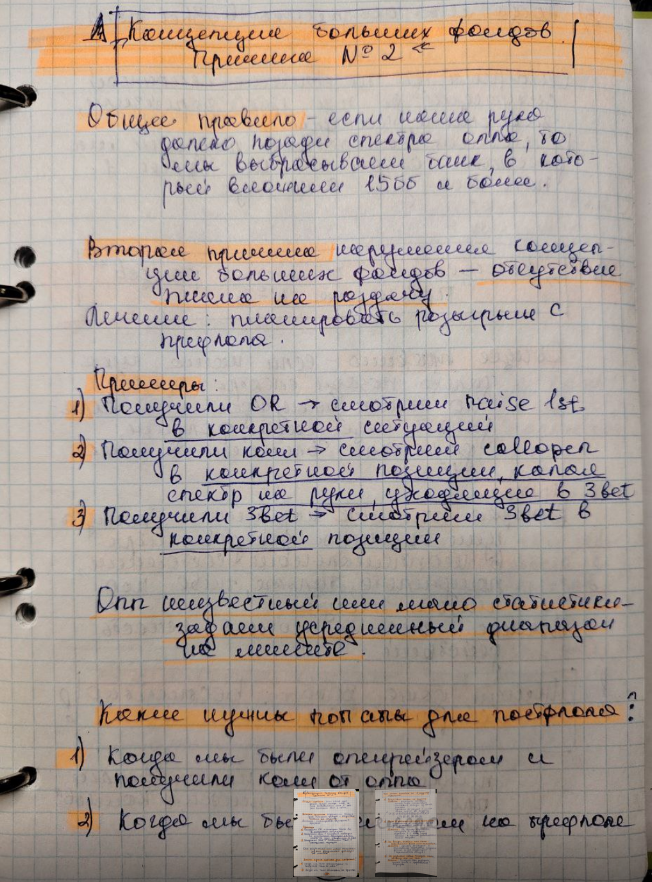 Концепция больших фолдов.
Причина № 2
Общее правило - если наша рука
далеко позади спектра оппа, то
мы выбрасываем банк, в кото-
рый вложили 15бб и более.
Вторая причина нарушения концеп-
ции больших фолдов — отсутствие
плана на раздачу.
Лечение: планировать розыгрыш с
префлопа.
Примеры:
1) Получили OR → смотрим raise 1st
в конкретной ситуации
2) Получили колл → смотрим callopen
в конкретной позиции, капая
спектр на руки, уходящие в 3bet
3) Получили 3bet → смотрим 3bet в
конкретной позиции
Опп неизвестный или мало статистики-
задаём усреднённый диапазон
на лимите.
Какие нужны поп апы для постфлопа?
1) Когда мы были опенрейзером и
получили колл от оппа
2) Когда мы на префлопе